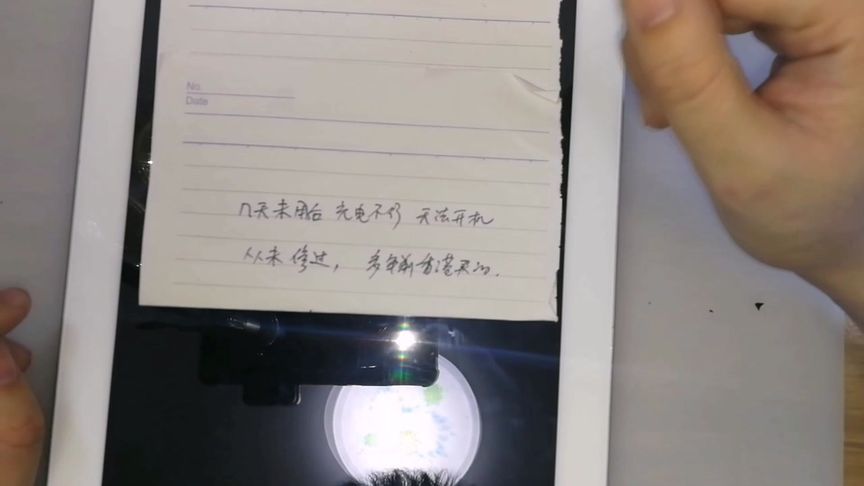 No.
Date
几天未用后 充电不行 无法开机
从未修过，多年前香港买的.